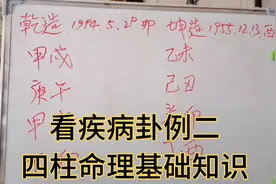 乾造 1994.5.29卯 坤造 1955.12.13酉
甲戌 乙未
庚午 己丑
甲
看疾病卦例二
四柱命理基础知识